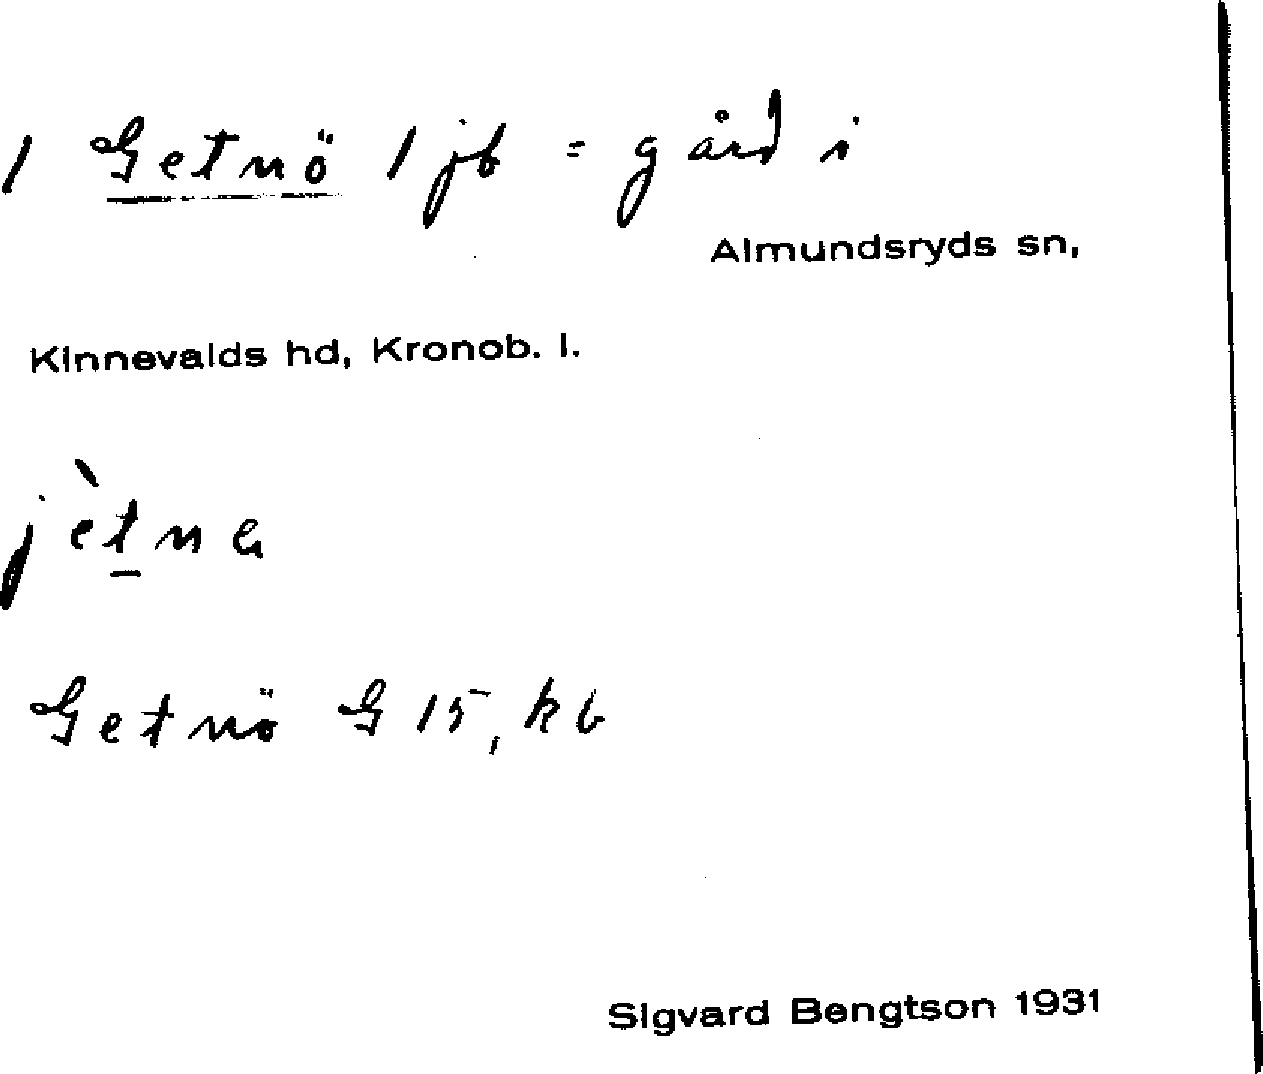 / Getnö / jb = gård i
Almundsryds sn,
Kinnevalds hd, Kronob. l.
jètna
Getnö G 15, kb
Sigvard Bengtson 1931